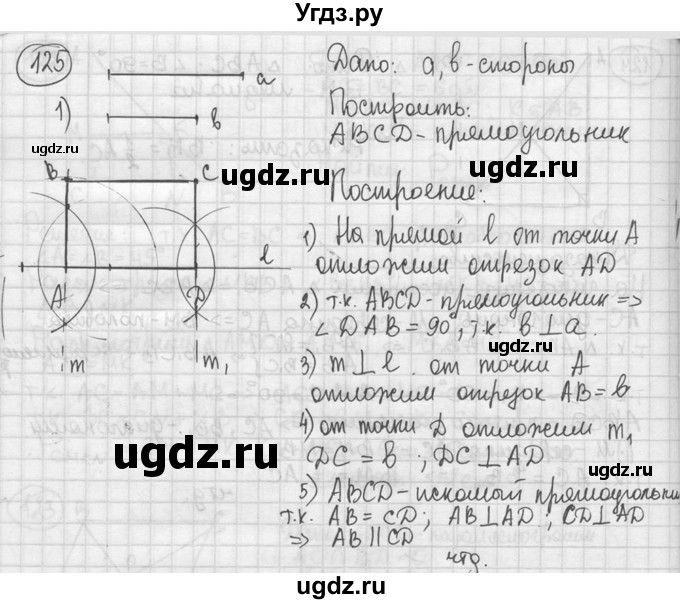 Угдз.ру
125
a
1)
b
B
C
l
A
D
m
m₁
Дано: a, b - стороны
Построить:
ABCD - прямоугольник
Построение:
1) На прямой l от точки A
отложим отрезок AD
2) т.к. ABCD - прямоугольник =>
∠DAB = 90°, т.к. b ⊥ a.
3) m ⊥ l. от точки A
отложим отрезок AB = b
4) от точки D отложим m₁
DC = b ; DC ⊥ AD
5) ABCD - искомый прямоугольни
т.к. AB = CD; AB ⊥ AD; CD ⊥ AD
=> AB || CD
чтд.
ugdz.ru
ugdz.ru
ugdz.ru
ugdz.ru
ugdz.ru
ugdz.ru
ugdz.ru
ugdz.ru